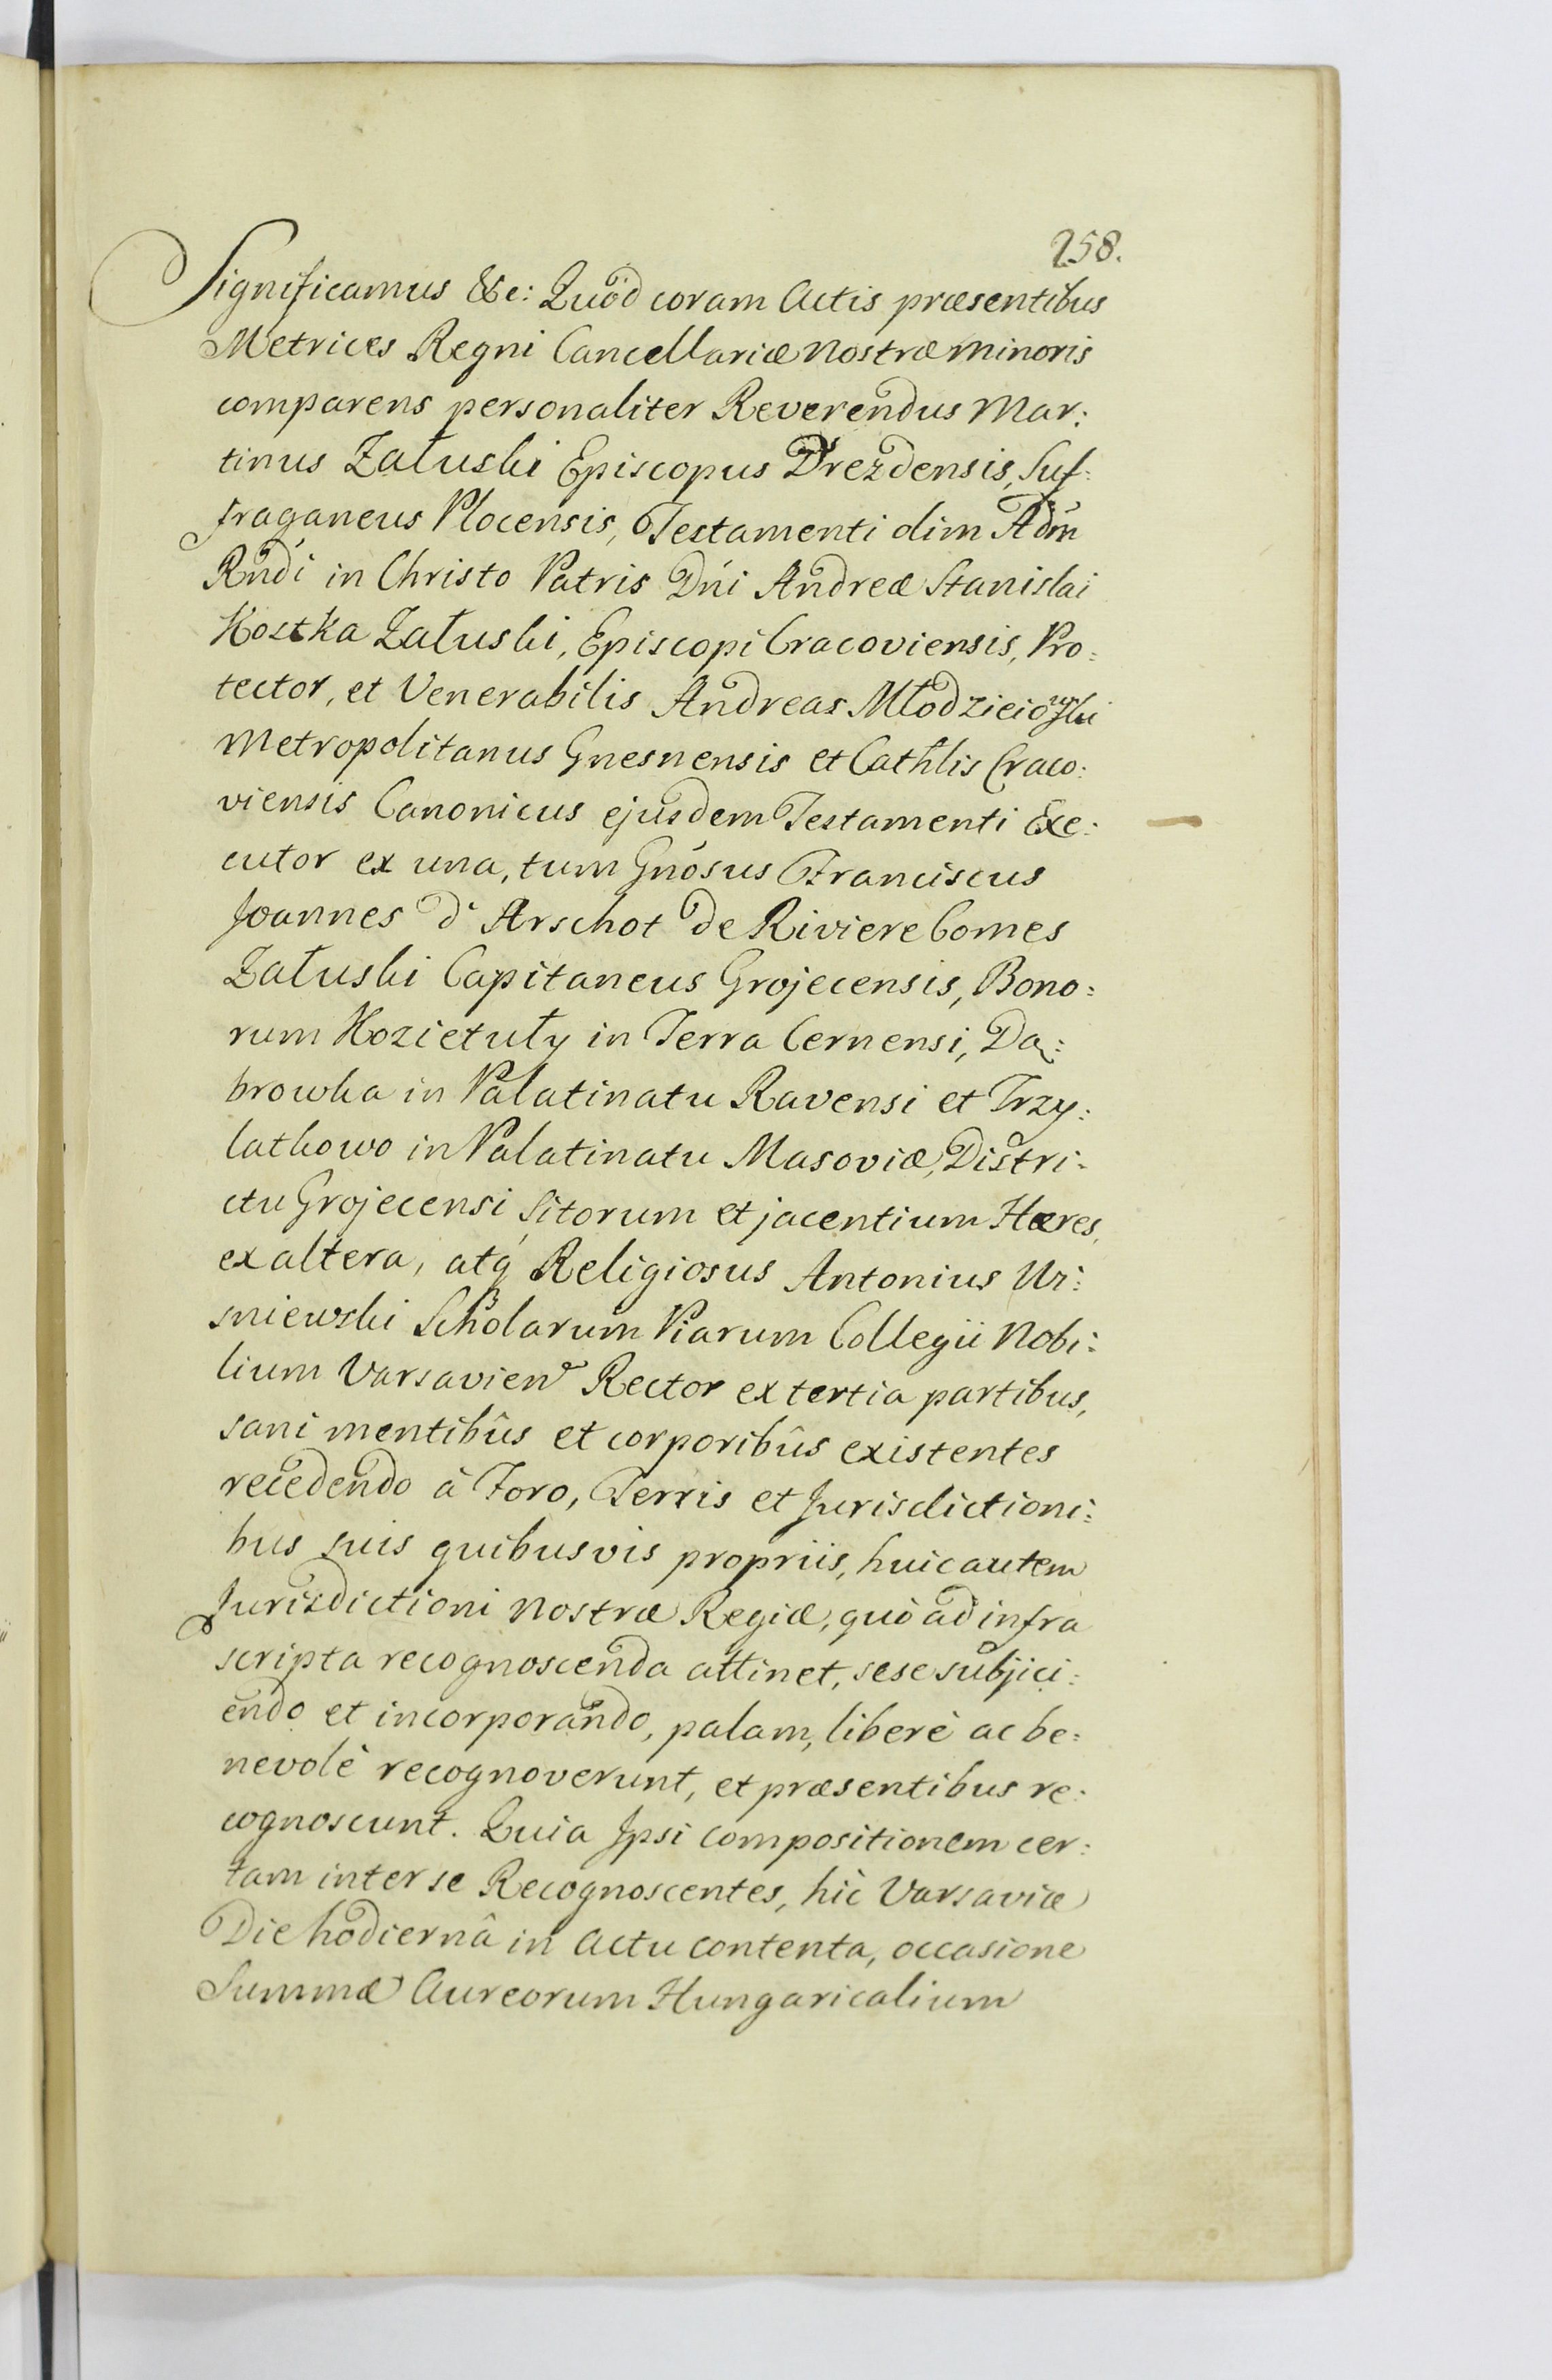 258.
Significamus &c: Quòd coram Actis præsentibus
Metrices Regni Cancellariæ Nostræ Minoris
comparens personaliter Reverendus Mar:
tinus Załuski Episcopus Drezdensis, Suf:
fraganeus Plocensis, Testamenti olim Adm̃
Rñdi in Christo Patris Dñi Andreæ Stanislai
Kostka Załuski, Episcopi Cracoviensis, Pro:
tector, et Venerabilis Andreas Młodzieiowski
Metropolitanus Gnesnensis et Cathłlis Craco:
viensis Canonicus ejusdem Testamenti Exe:
cutor ex una, tum Gñosus Franciscus
Joannes d' Arschot de Riviere Comes
Załuski Capitaneus Grojecensis, Bono:
rum Kozietuły in Terra Cernensi, Dą:
browka in Palatinatu Ravensi et Trzy:
latkowo in Palatinatu Masoviæ, Distri:
ctu Grojecensi sitorum et jacentium Hæres,
ex altera, atq́ Religiosus Antonius Wi:
sniewski Scholarum Piarum Collegii Nobi:
lium Varsavien̄ Rector ex tertia partibus,
sani mentibûs et corporibûs existentes
recedendo à Foro, Terris et Jurisdictioni:
bus suis quibusvis propriis, huic autem
Jurisdictioni Nostræ Regiæ, quò ad infra
scripta recognoscenda attinet, sese subjici:
endo et incorporando, palam, liberè ac be:
nevolè recognoverunt, et præsentibus re:
cognoscunt. Quia Ipsi compositionem cer:
tam inter se Recognoscentes, hìc Varsaviæ
Die hodiernâ in Actu contenta, occasione
Summæ Aureorum Hungaricalium